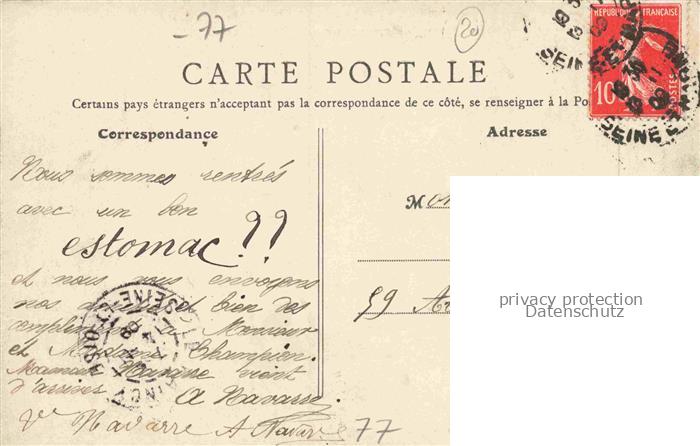 -77
20
RÉPUBLIQUE FRANÇAISE
POSTES
10
SEINE ET
CARTE POSTALE
Certains pays étrangers n'acceptant pas la correspondance de ce côté, se renseigner à la Po
Correspondance
Adresse
Nous sommes rentrés
avec un bon
estomac??
et nous vous envoyons
nos amitiés et bien des
compliments à Monsieur
et Madame Champion.
Maman Narisse vient
d'arriver. A Navarre
Vve Navarre A Navarre
77
SEINE-ET-OISE
Mon
59 A
privacy protection
Datenschutz